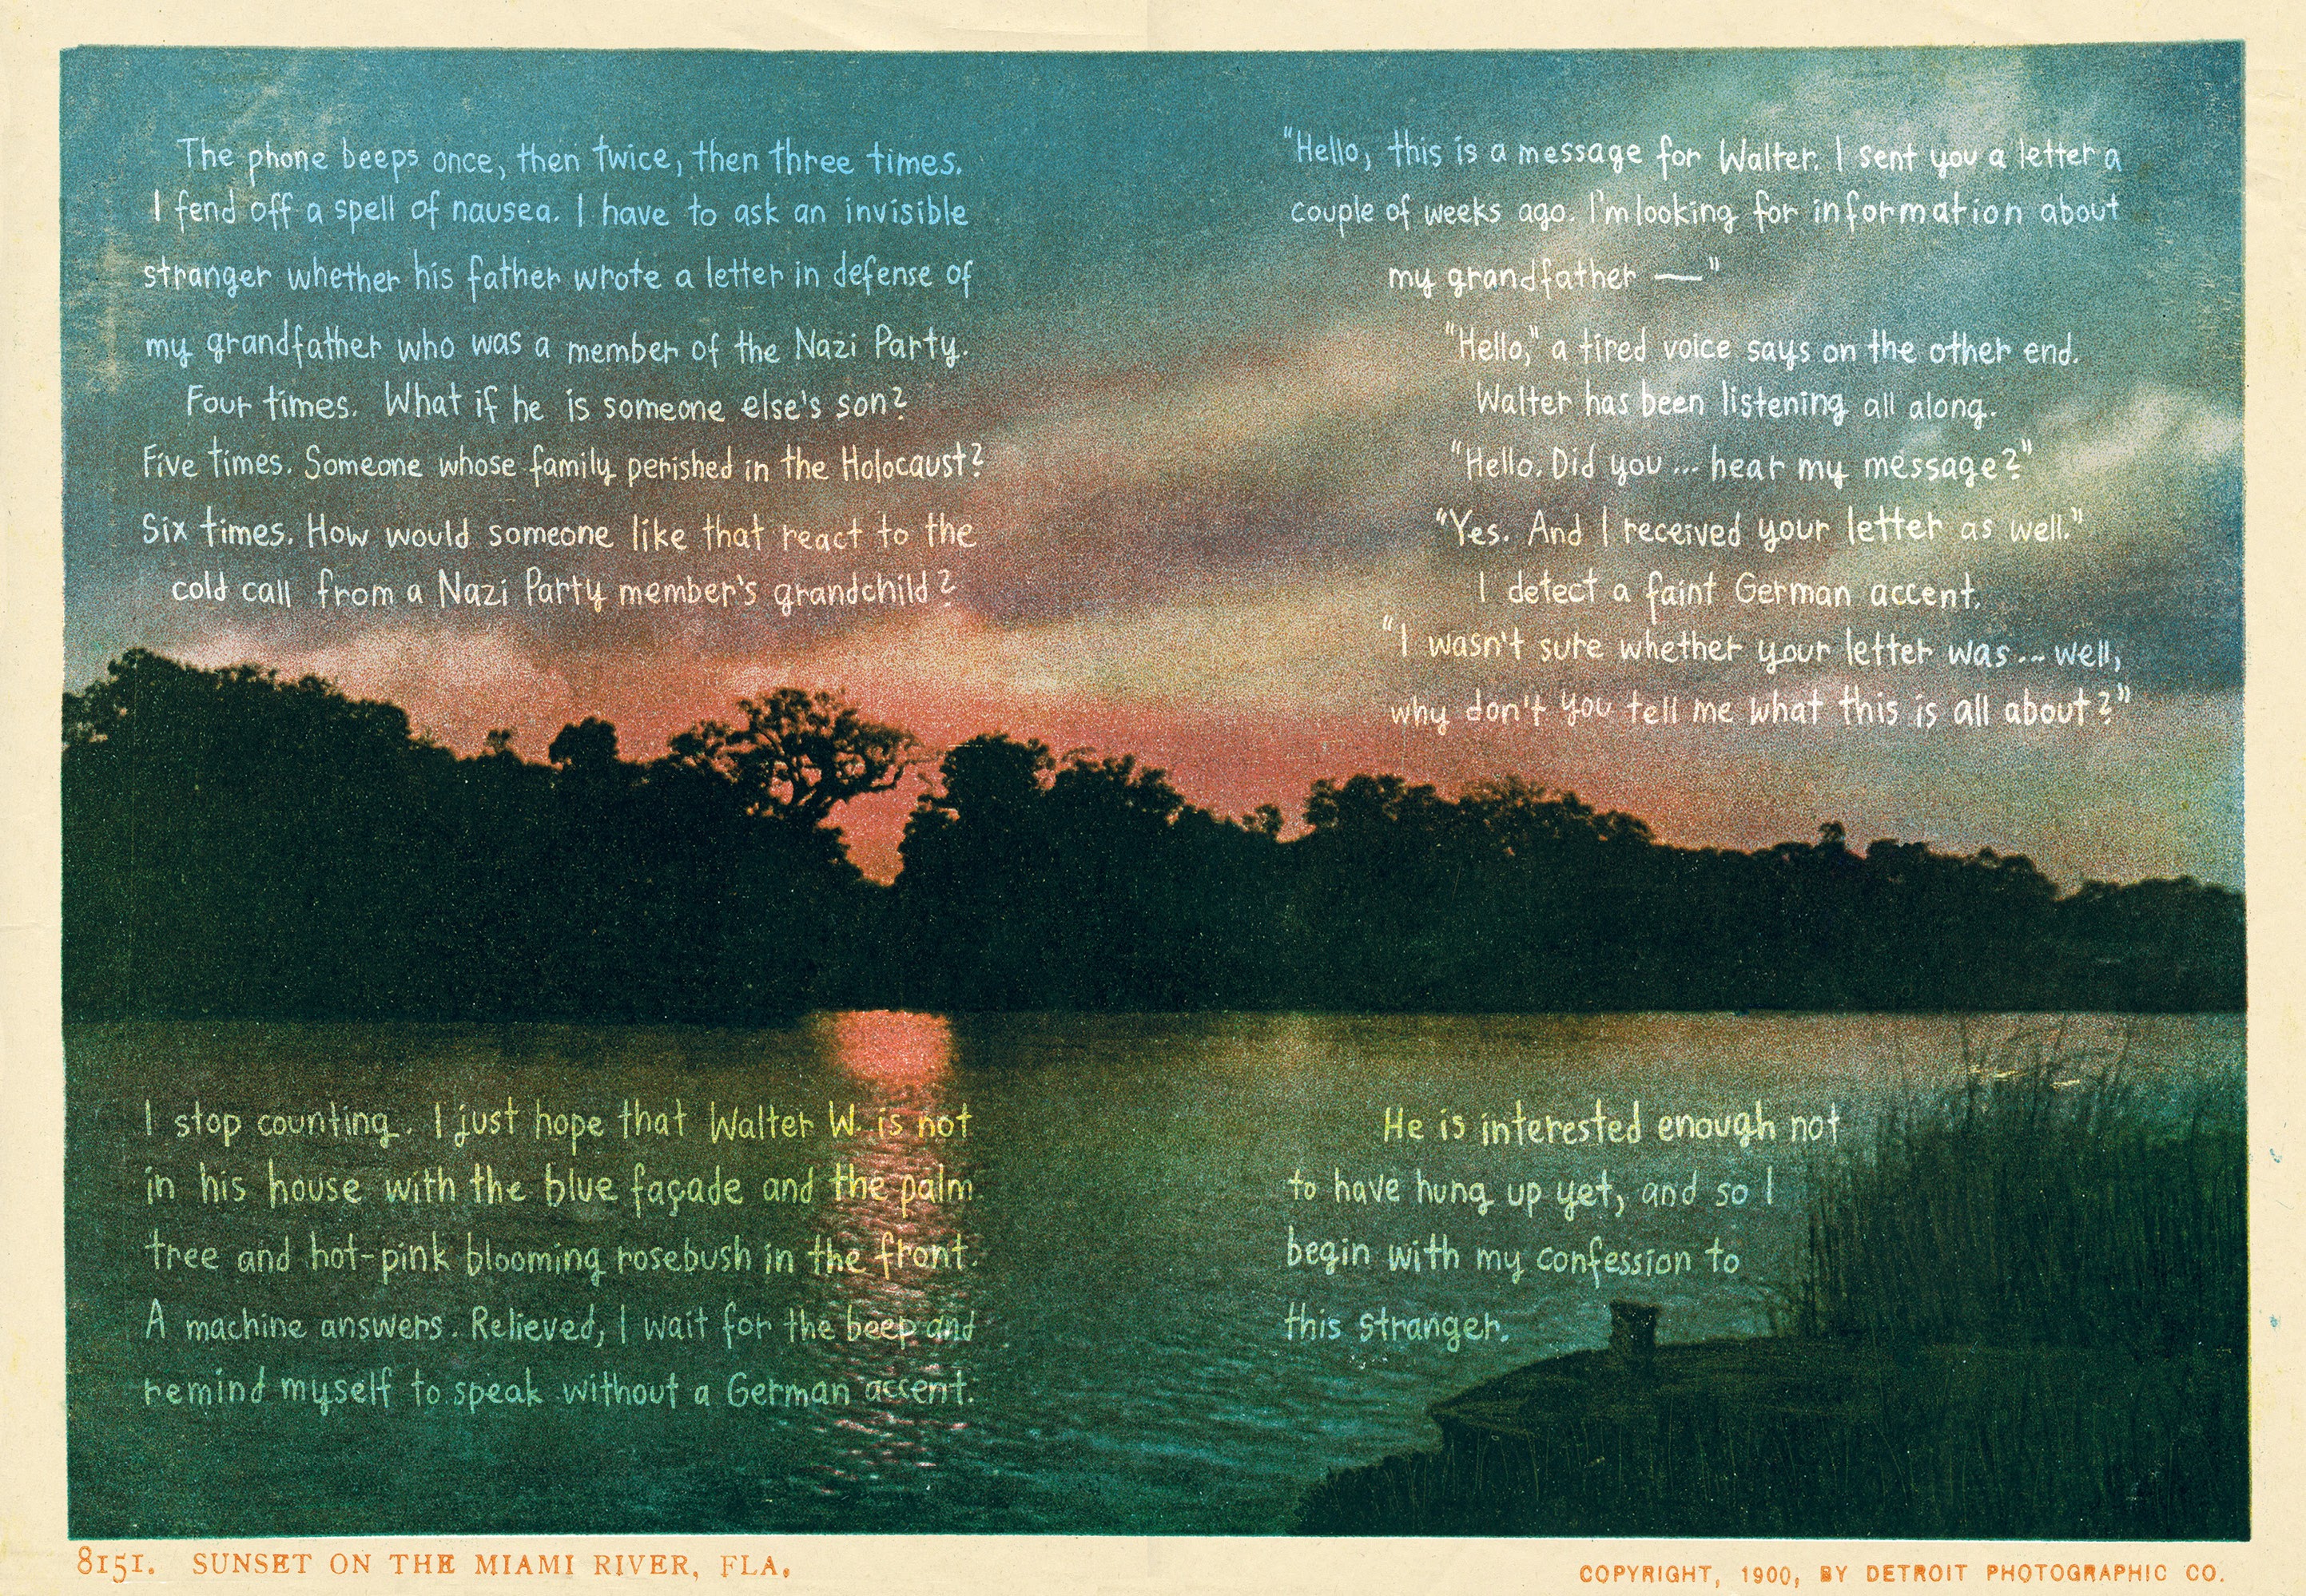 The phone beeps once, then twice, then three times.
I fend off a spell of nausea. I have to ask an invisible
stranger whether his father wrote a letter in defense of
my grandfather who was a member of the Nazi Party.
Four times. What if he is someone else's son?
Five times. Someone whose family perished in the Holocaust?
Six times. How would someone like that react to the
cold call from a Nazi Party member's grandchild?
I stop counting. I just hope that Walter W. is not
in his house with the blue façade and the palm
tree and hot-pink blooming rosebush in the front.
A machine answers. Relieved, I wait for the beep and
remind myself to speak without a German accent.
"Hello, this is a message for Walter. I sent you a letter a
couple of weeks ago. I'm looking for information about
my grandfather —"
"Hello," a tired voice says on the other end.
Walter has been listening all along.
"Hello. Did you ... hear my message?"
"Yes. And I received your letter as well."
I detect a faint German accent.
"I wasn't sure whether your letter was ... well,
why don't you tell me what this is all about?"
He is interested enough not
to have hung up yet, and so I
begin with my confession to
this stranger.
8151. SUNSET ON THE MIAMI RIVER, FLA.
COPYRIGHT, 1900, BY DETROIT PHOTOGRAPHIC CO.